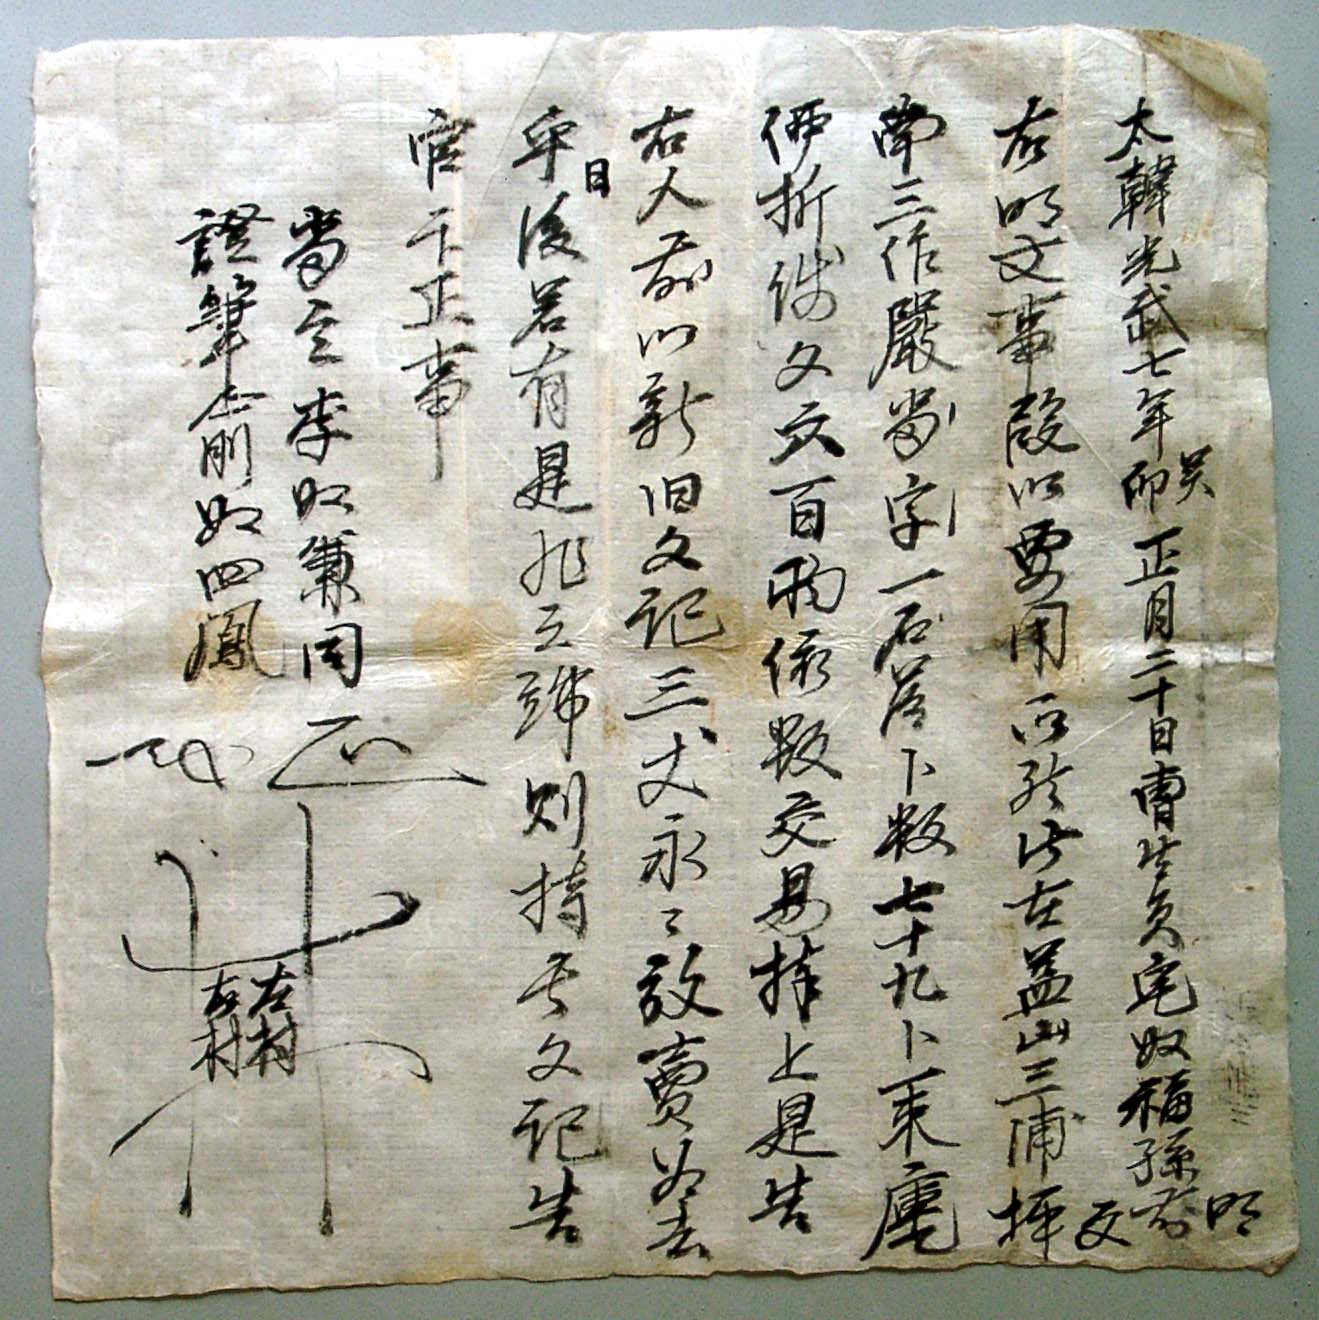 太韓光武七年癸卯正月二十日曺生員宅奴福孫前明文
右明文事段以要用所致伏在益山三浦坪
南三作嚴字一石落卜數七十九卜一束庫
價折錢文百兩依數交易捧上是告
右人前以新旧文記三丈永々放賣為去
乎日後若有是非之端則持此文記告
官卞正事
畓主李奴兼同
證筆前奴四鳳
左村
右村